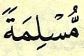 مُّسْلِمَةً